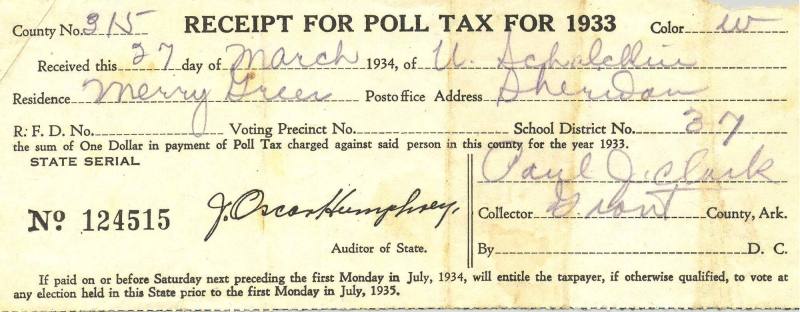 County No. 315 RECEIPT FOR POLL TAX FOR 1933 Color W
Received this 27 day of March 1934, of U.
Residence Merry Green Postoffice Address Sheridan
R. F. D. No. Voting Precinct No. School District No. 37
the sum of One Dollar in payment of Poll Tax charged against said person in this county for the year 1933.
STATE SERIAL
Paul J. Clark
No 124515 J. Oscar Humphrey, Collector Grant County, Ark.
Auditor of State. By D. C.
If paid on or before Saturday next preceding the first Monday in July, 1934, will entitle the taxpayer, if otherwise qualified, to vote at
any election held in this State prior to the first Monday in July, 1935.